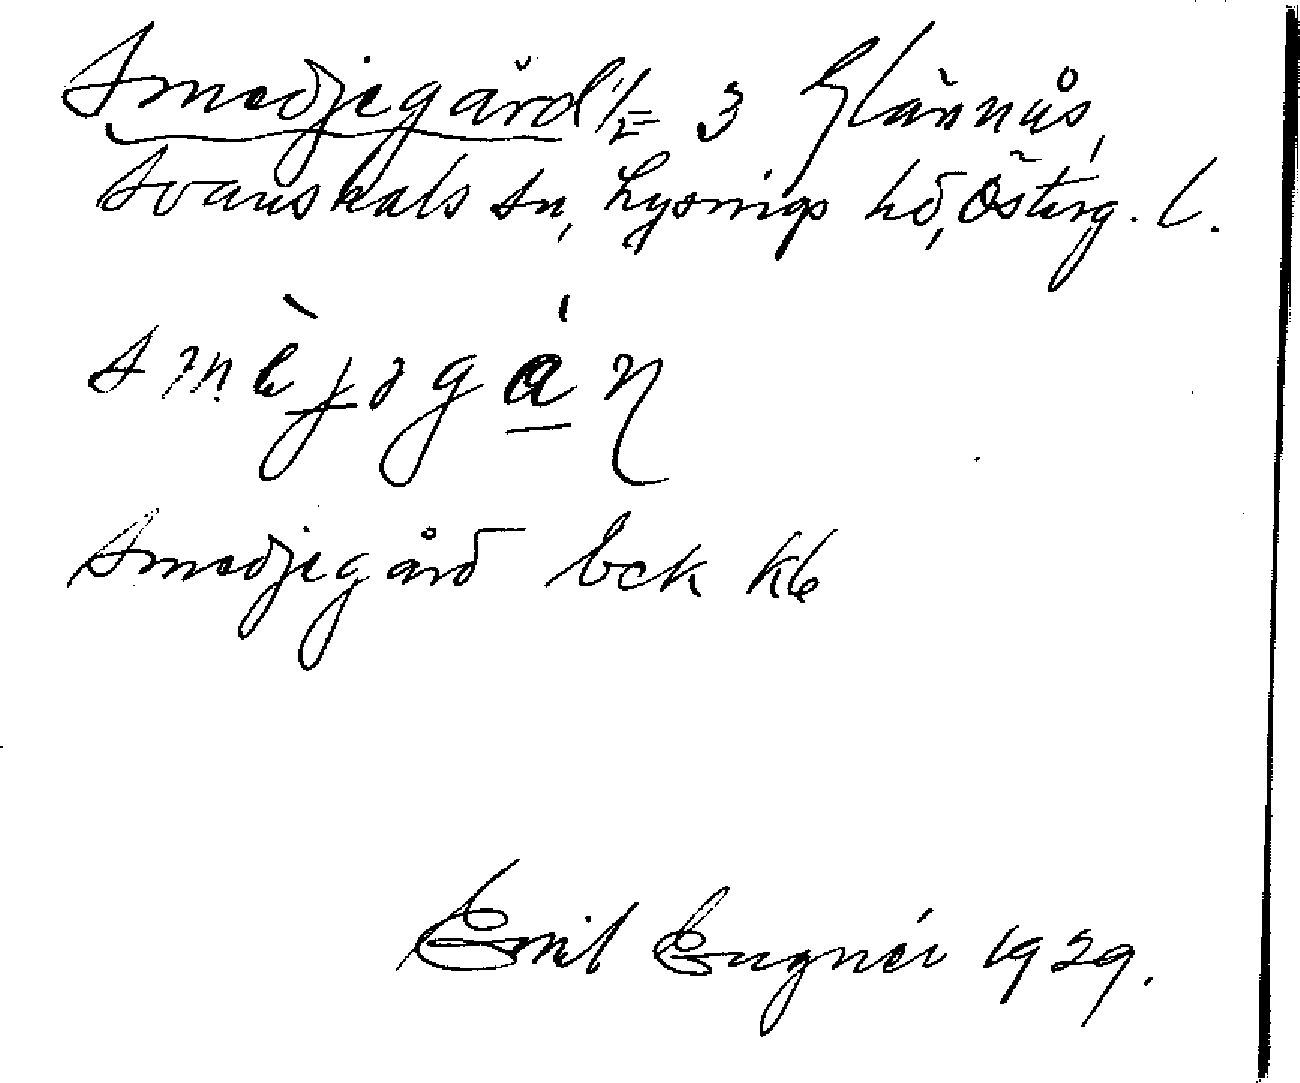 Smedjegård 1/2 = 3 Glännås,
Svanshals sn, Lysings hd, Österg. l.
smèjəgá̲ɳ
Smedjegård bck kb
Emil Eugnér 1929.